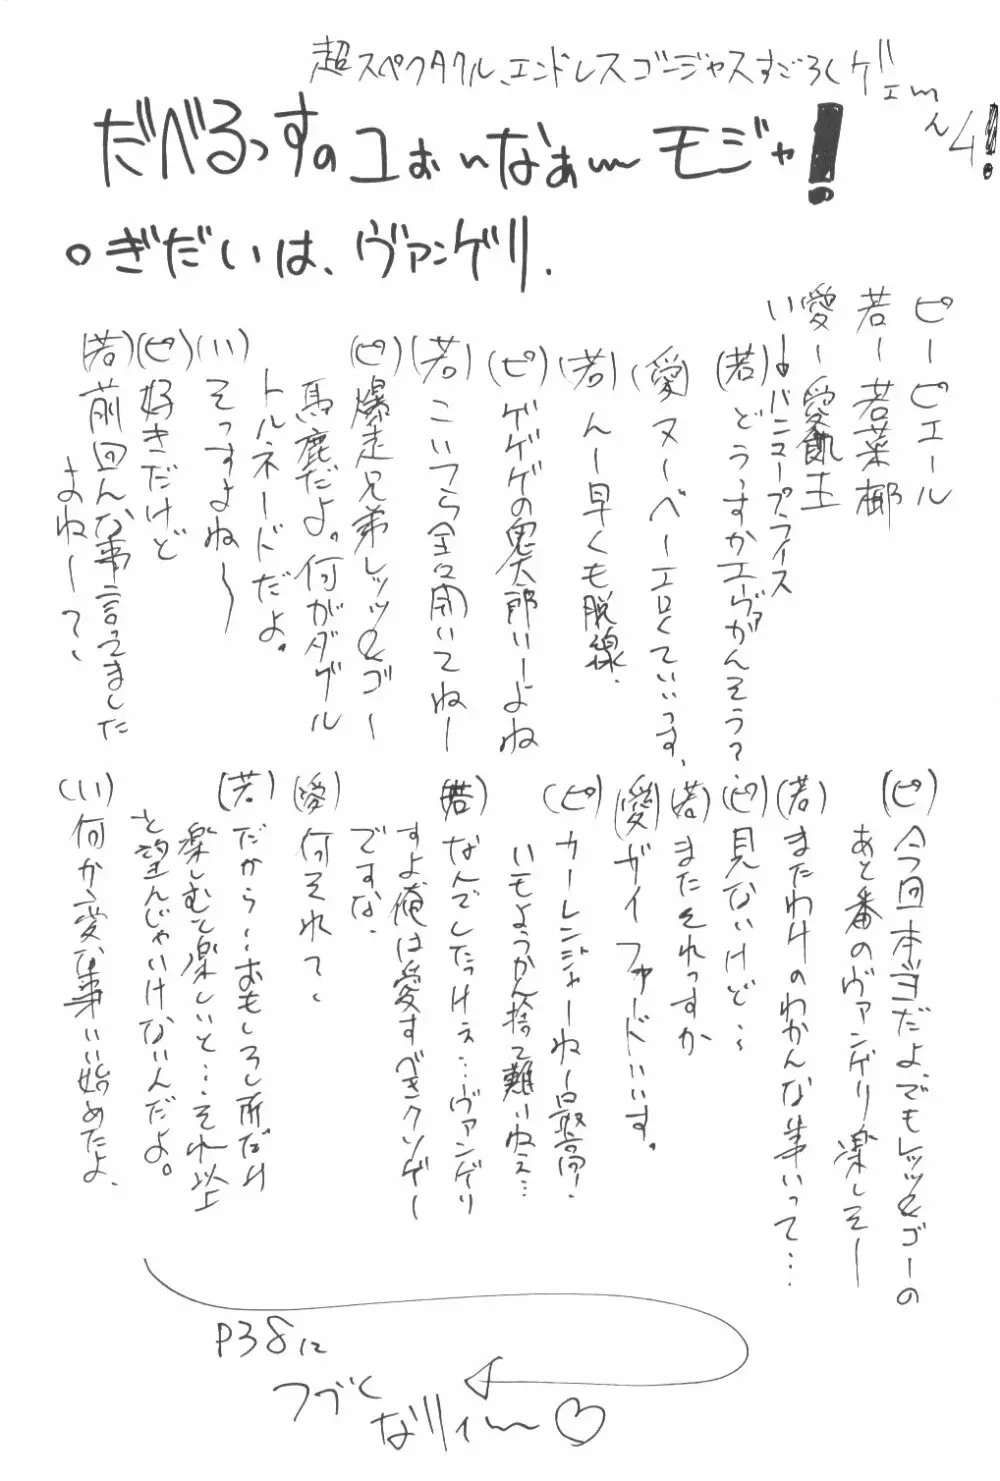 超スペクタクル、エンドレスゴージャスすごろくゲェーんム!
だべるっすのコぉぃなぁーモジャ!
○ぎだいは、ヴァンゲリ.
ピーピエール
若ー若菜椰
愛ー愛飢王
い→バニュープライス
(若)どうっすかエヴァがんそう?
(愛)ヌーベーエロくていいっす、
(若)んー早くも脱線.
(ピ)ゲゲゲの鬼太郎いーよね
(若)こいつら全々聞いてねー
(ピ)爆走兄弟レッツ&ゴー
馬鹿だよ。何がダブル
トルネードだよ。
(い)そっすよね〜
(ピ)好きだけど
(若)前回んな事言ってました
よねーて、
(ピ)今回本当だよ、でもレッツ&ゴーの
あと番のヴァンゲリ楽しそー
(若)またわけのわかんな事いって…
(ピ)見ないけど…
(若)またそれっすか
(愛)ガイファードいいす。
(ピ)カーレンジャーねー最高!
いもようかん捨て難いねぇ…
(若)なんでしたっけぇ…ヴァンゲリ
すよ俺は愛すべきクソゲー
ですな、
(愛)何それて、
(若)だから…おもしろい所だけ
楽しむて楽しいと…それ以上
と望んじゃいけないんだよ。
(い)何か変な事いい始めたよ、
P38に
つづく
なりィー♡